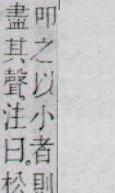 叩之以小者則
盡其聲注曰松